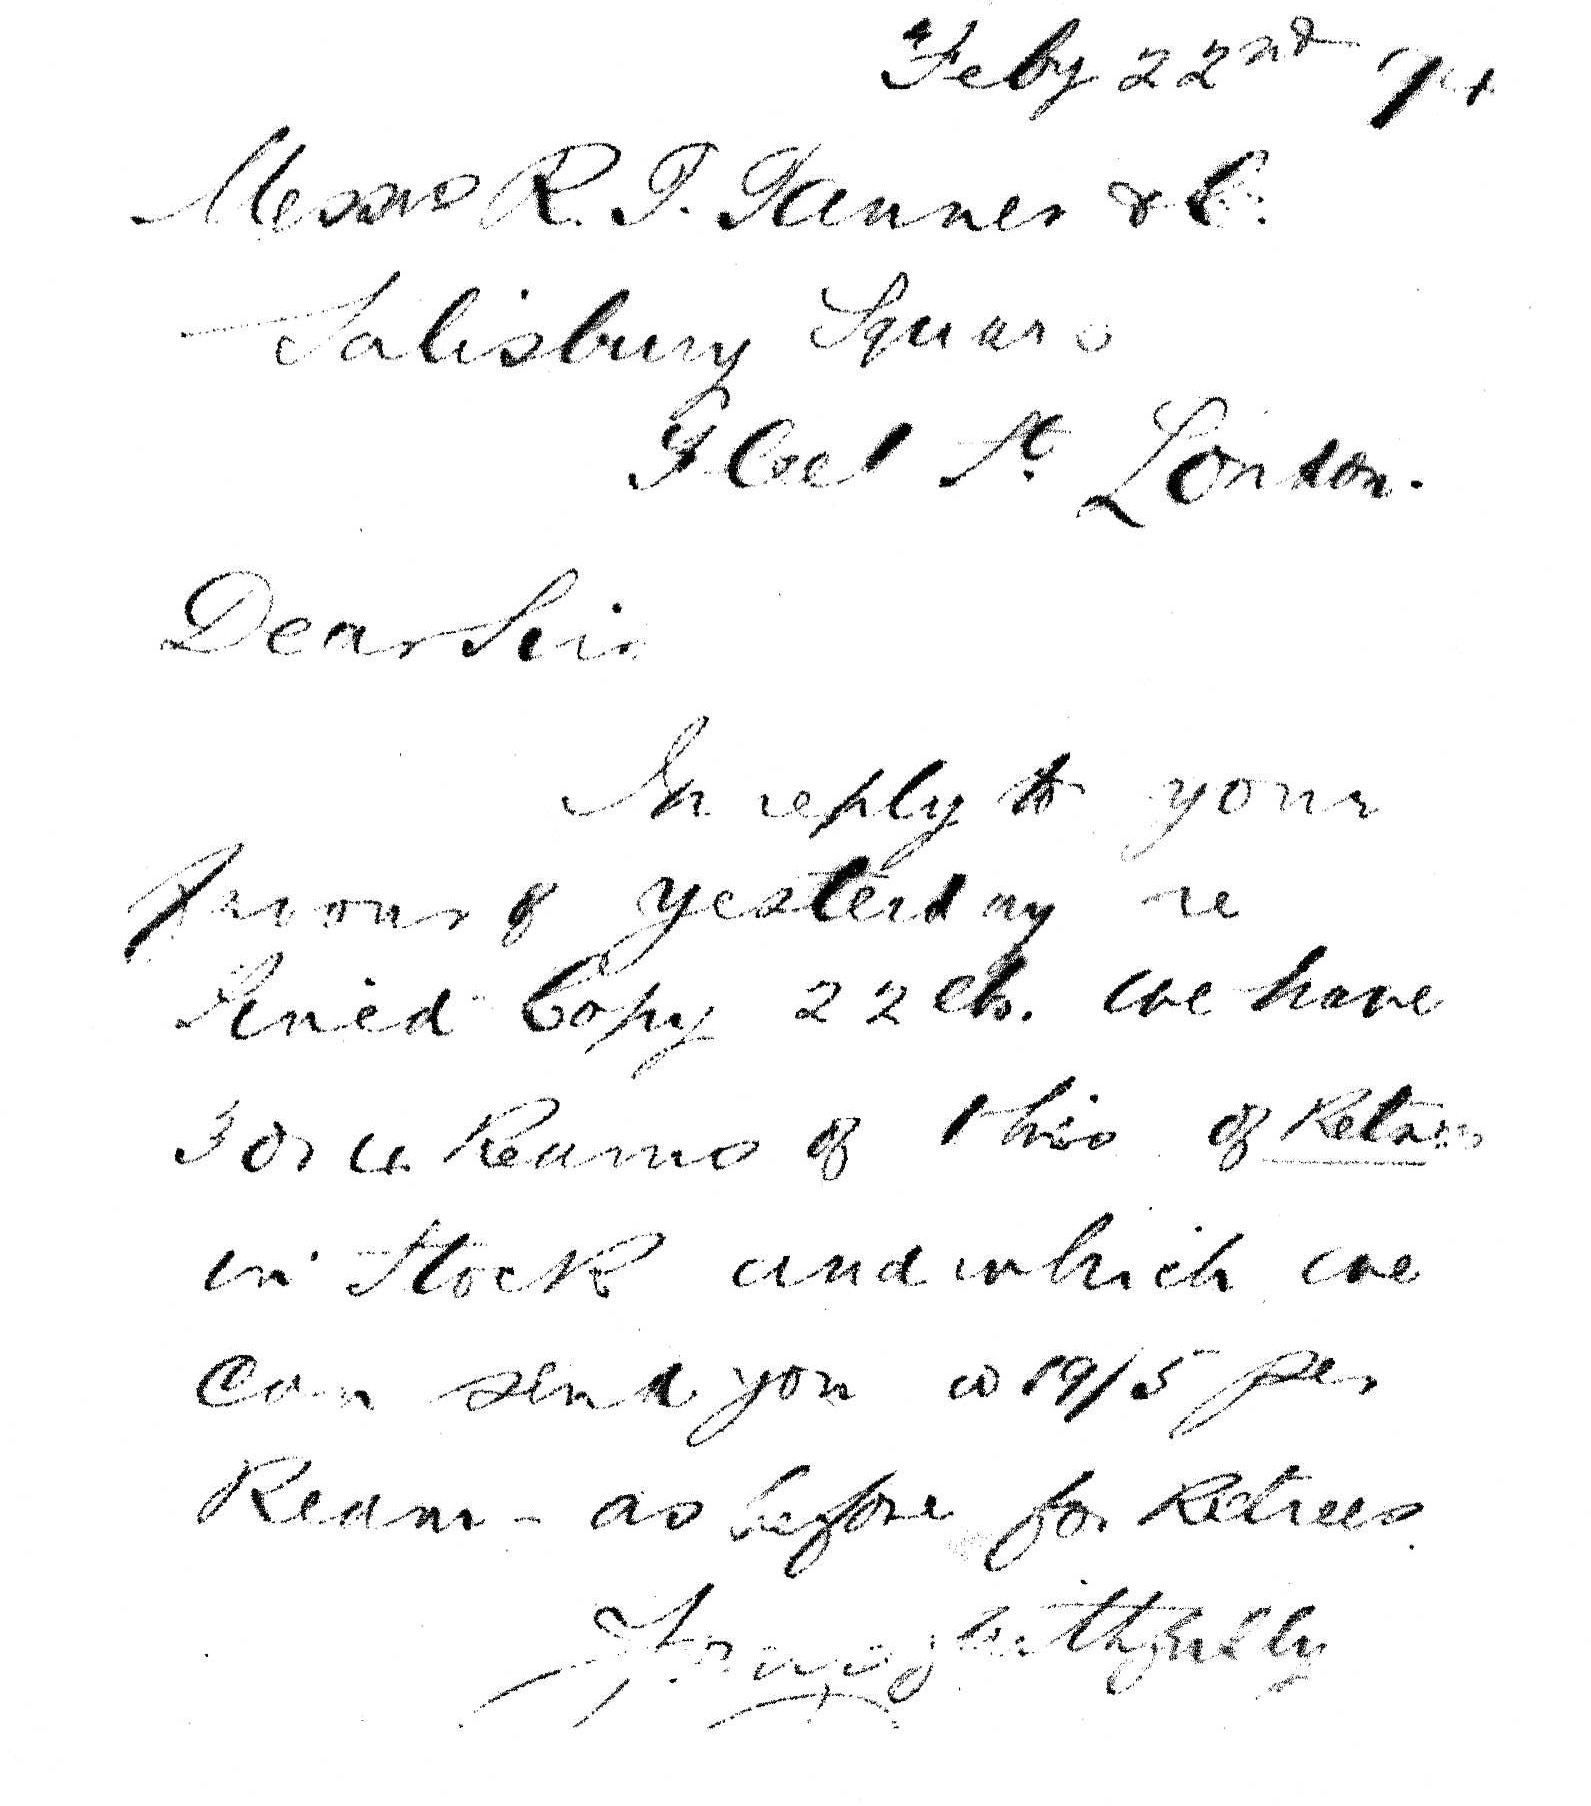 Feby 22nd
Messrs R. T. Tanner & Co.
Salisbury Square
Fleet St. London.
Dear Sir
In reply to your
favour of yesterday re
Tinted Copy 22 lbs. we have
3 or 4 Reams of this of Retrees
in Stock and which we
Can send you @ 19/5 per
Ream - as before for Retrees.
Yours faithfully